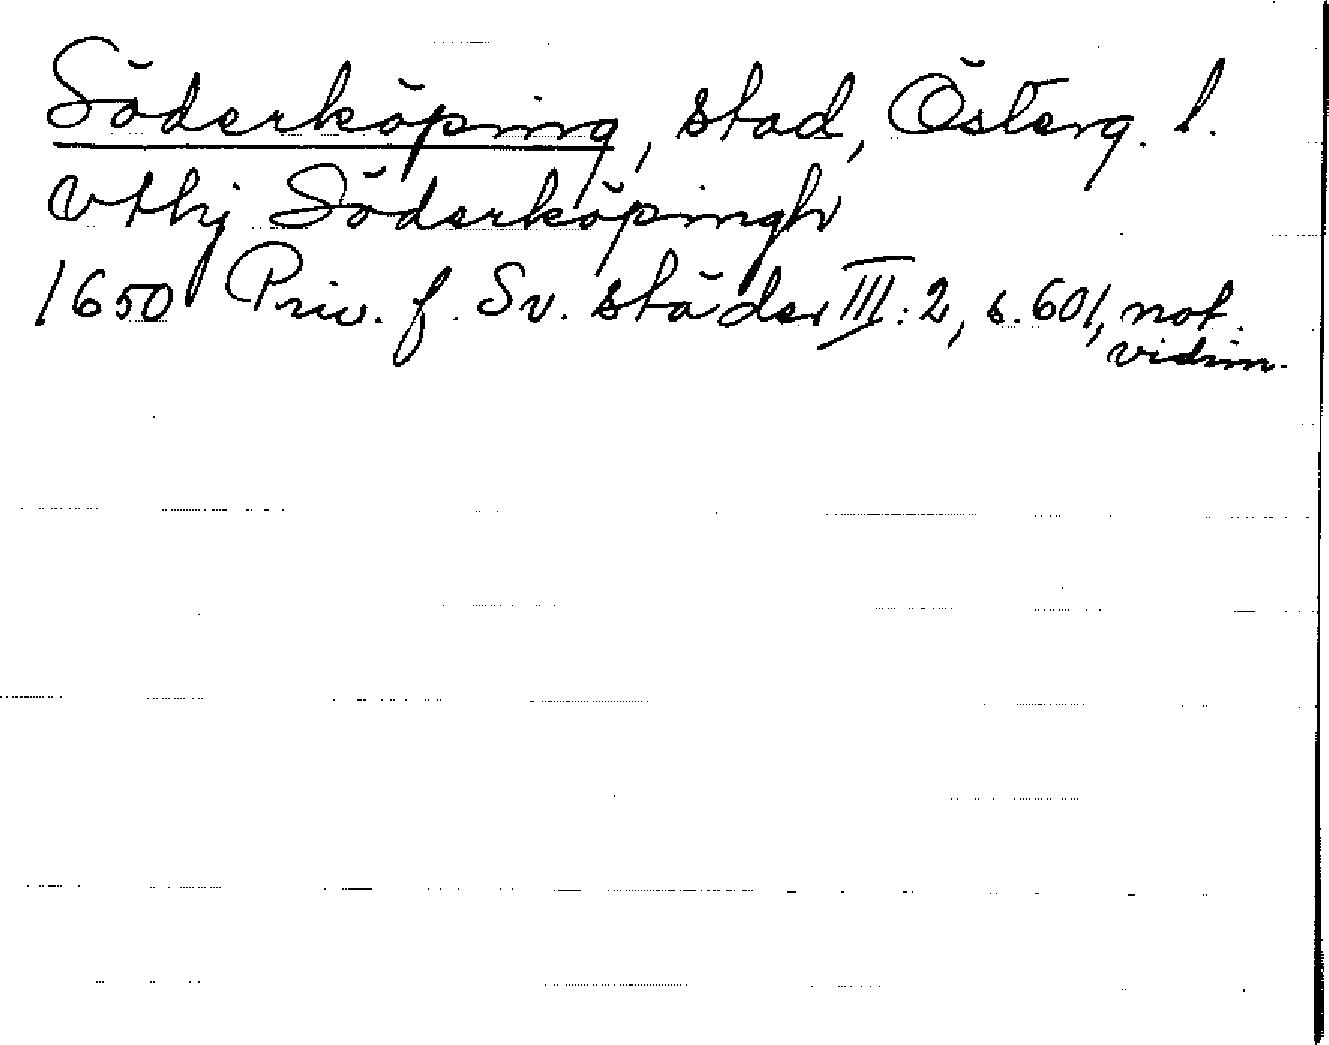 Söderköping, stad, Österg. l.
vthj Söderköpingh
1650 Priv. f. Sv. städer III: 2, s. 601, not.
vidim.